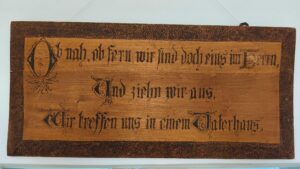 Ob nah, ob fern wir sind doch eins im Herrn,
Und ziehn wir aus,
Wir treffen uns in einem Vaterhaus.